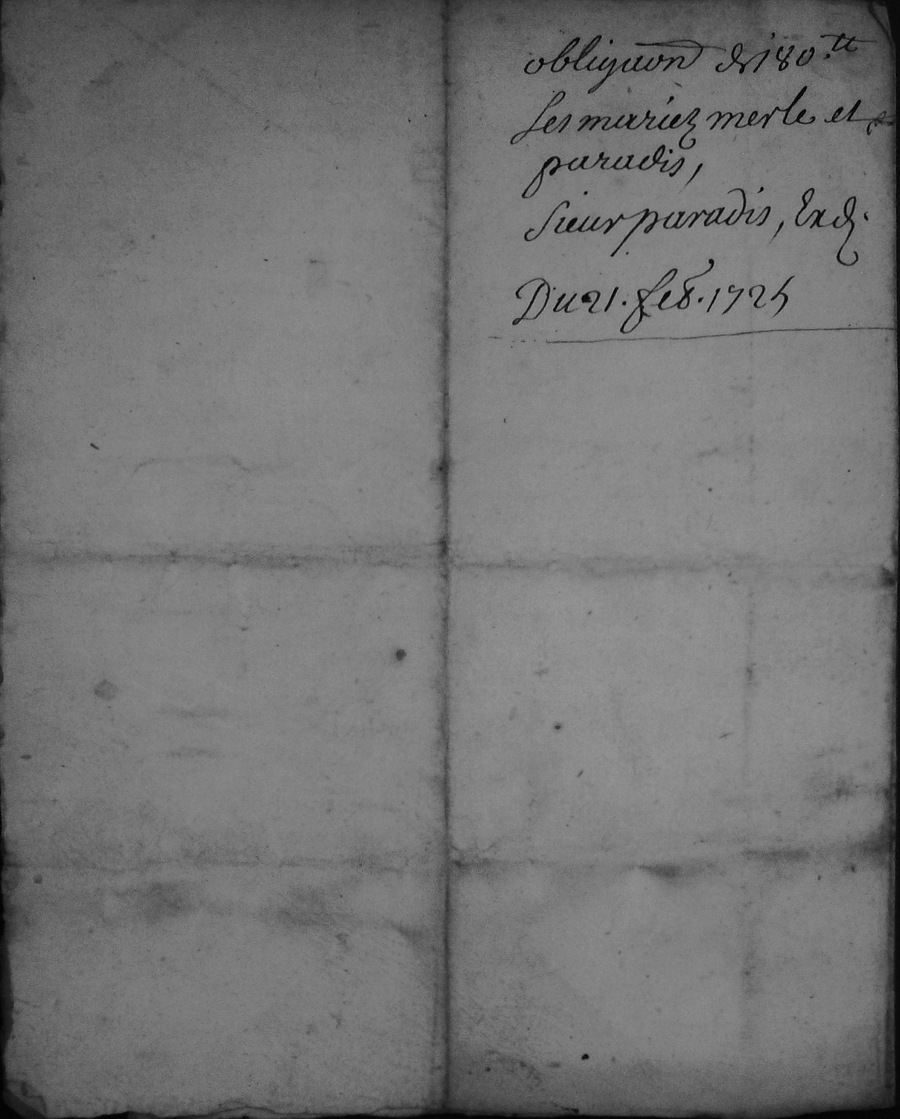 obligaõn de 180.tt
Les mariez merle et
paradis,
Sieur paradis,
Du 21. feb. 1725